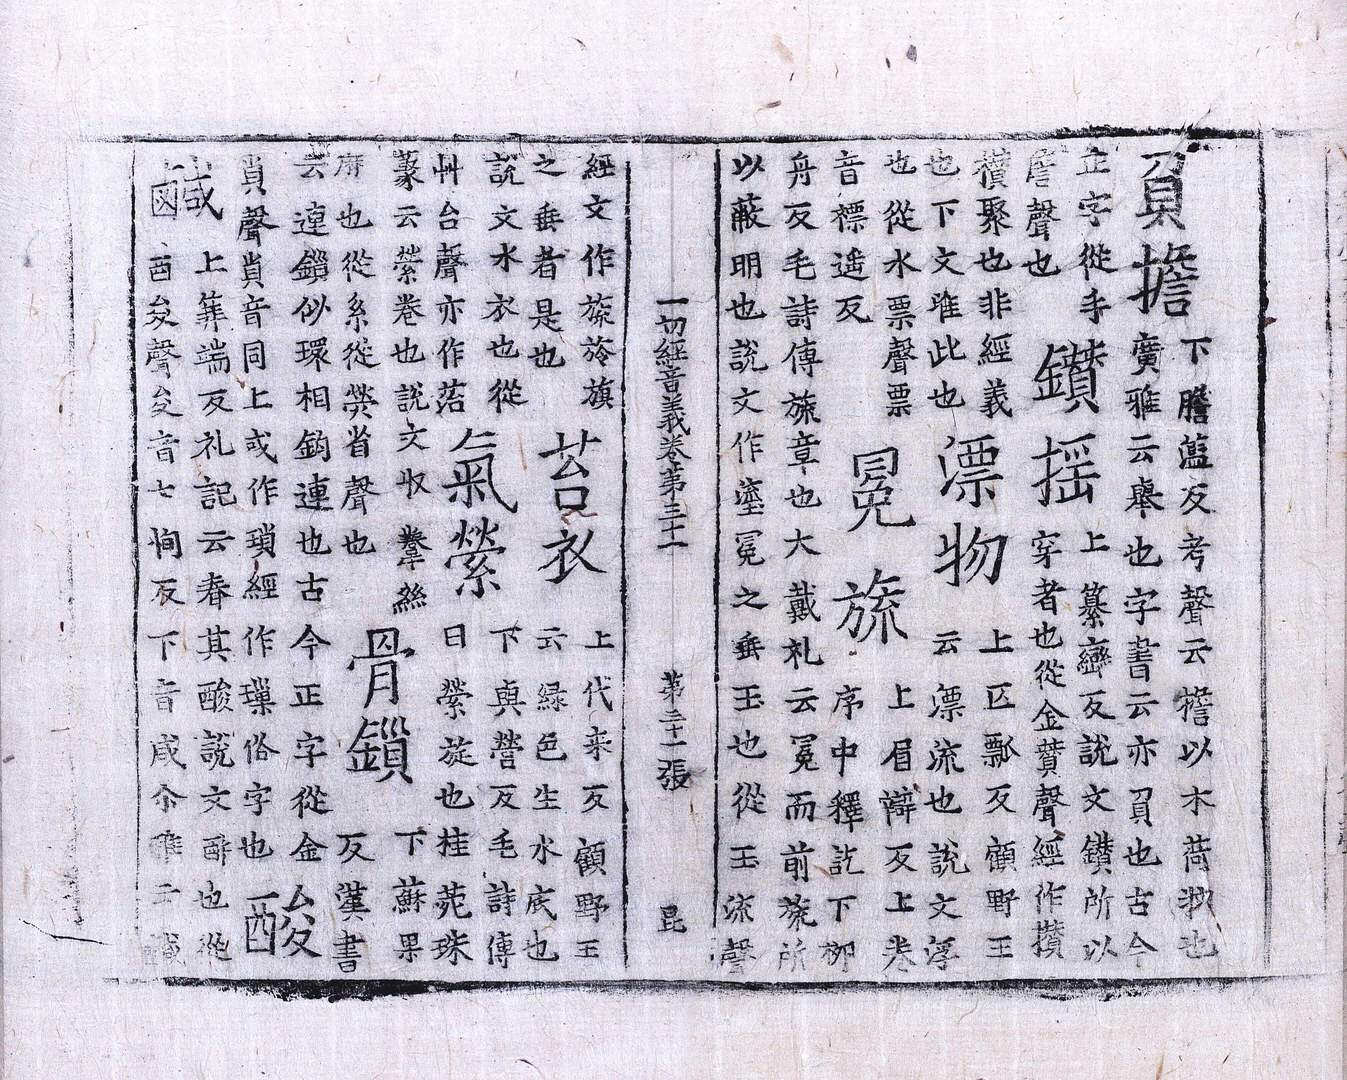 負擔
下膽藍反考聲云擔以木荷物也
廣雅云舉也字書云亦負也古今
正字從手
詹聲也
鑽搖
上纂巒反說文鑽所以
穿者也從金贊聲經作攢
攢聚也非經義
也下文唯此也
漂物
上匹瓢反顧野王
云漂流也說文浮
也從水票聲票
音標遙反
冕旒
上眉辯反上卷
序中釋訖下柳
舟反毛詩傳旒章也大戴礼云冕而前旒所
以蔽明也說文作瑬冕之垂玉也從玉流聲
一切經音義卷第三十一 第三十一張 昆
經文作旒旍旗
之垂者是也
苔衣
上代來反顧野王
云綠色生水底也
說文水衣也從
艸台聲亦作菭
氣縈
下㷀營反毛詩傳
曰縈旋也桂苑珠
篆云縈卷也說文收絲
麻也從糸從熒省聲也
骨鎖
下蘇果
反漢書
云連鎖似環相鉤連也古今正字從金
𧴪聲𧴪音同上或作瑣經作璅俗字也
酸鹹
上筭端反礼記云春其酸說文酢也從
酉夋聲夋音七恂反下音咸尒雅云鹹